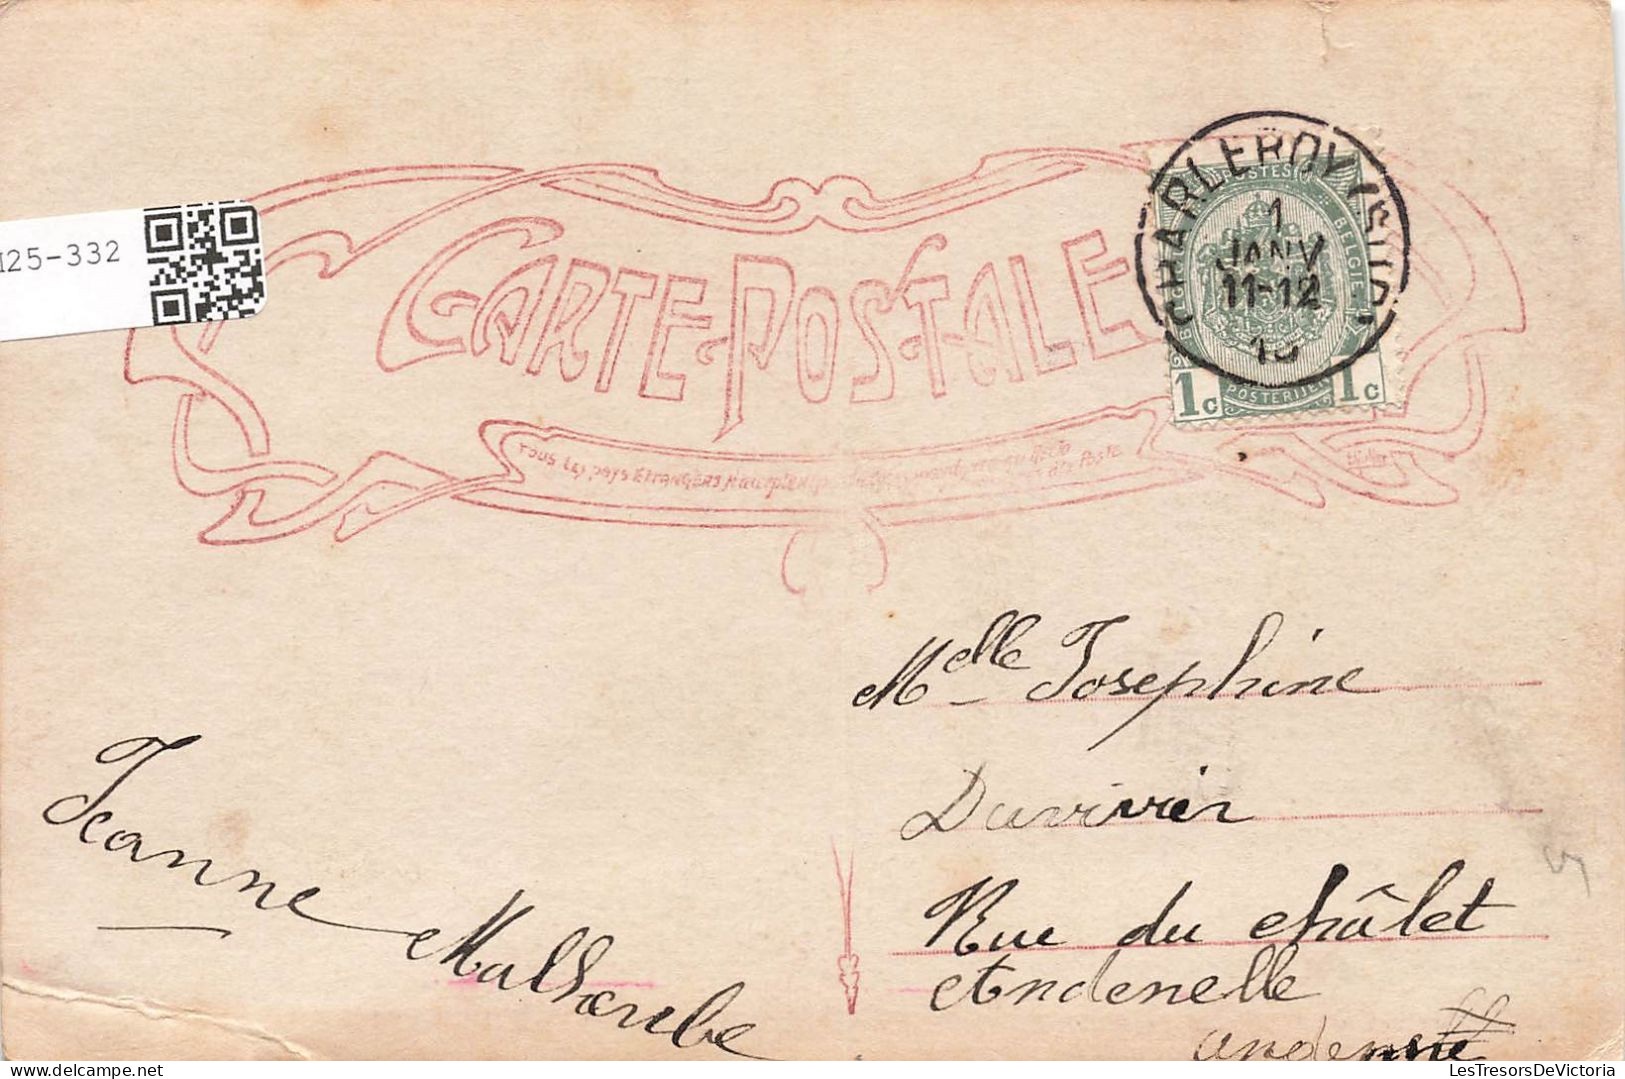 125-332
CARTE-POSTALE
TOUS LES PAYS ÉTRANGERS N'acceptent pas
de Poste
CHARLEROY (SUD)
1
JANV
11-12
10
POSTES
BELGIE
1c POSTERIJEN 1c
Melle Josephine
Duvivier
Rue du châlet
Andenelle
andenne
Jeanne Malherbe
LesTresorsDeVictoria